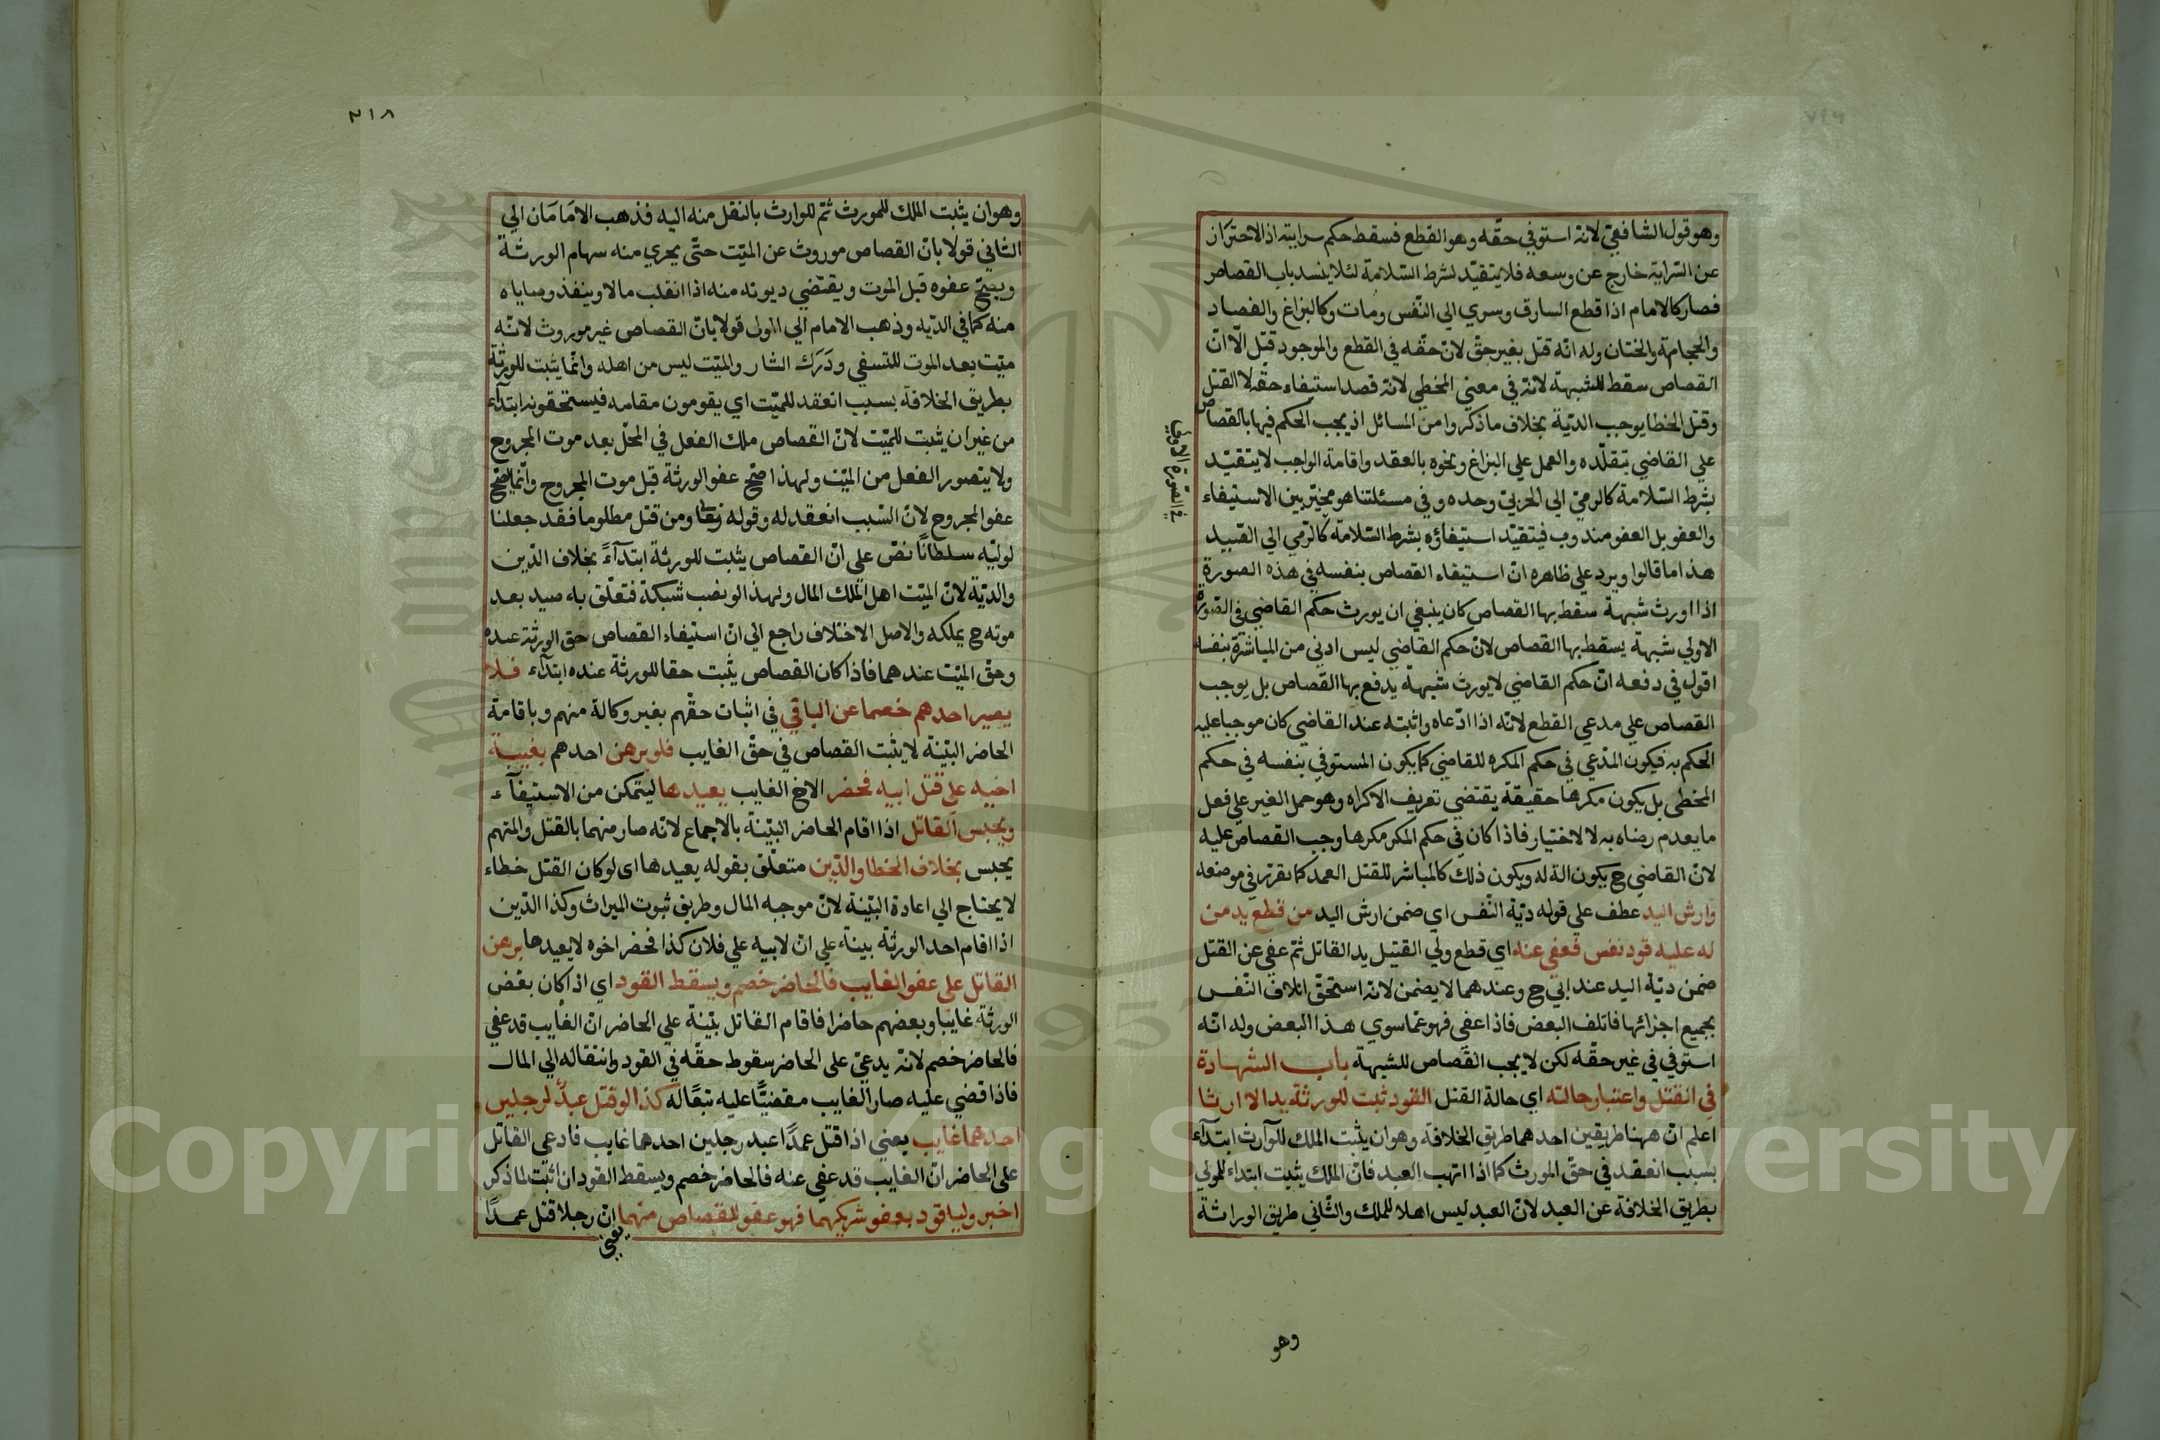 وهو قول الشافعي لانه استوفي حقه وهو القطع فسقط حكم سرايته اذ الاحتراز
عن السراية خارج عن وسعه فلا يتقيد بشرط السلامة لئلا ينسد باب القصاص
فصار كالامام اذا قطع السارق وسري الي النفس ومات وكالبزاغ والفصاد
والحجامة والختان وله انه قتل بغير حق لان حقه في القطع والموجود قتل الا ان
القصاص سقط للشبهة لانه في معني المخطي لانه قصد استيفاء حقه لا القتل
وقتل الخطا يوجب الدية بخلاف ما ذكروا من المسائل اذ يجب الحكم فيها بالقصاص
علي القاضي بتقلده والعمل علي البزاغ ونحوه بالعقد واقامة الواجب لا يتقيد
بشرط السلامة كالرمي الي الحربي وحده وفي مسئلتنا هو مخير بين الاستيفاء
والعفو بل العفو مندوب فيتقيد استيفاؤه بشرط السلامة كالرمي الي الصيد
هذا ما قالوا ويرد علي ظاهره ان استيفاء القصاص بنفسه في هذه الصورة
اذا اورث شبهة سقط بها القصاص كان ينبغي ان يورث حكم القاضي في الصورة
الاولي شبهة يسقط بها القصاص لان حكم القاضي ليس ادني من المباشرة بنفسه
في الصورة الاولي
اقول في دفعه ان حكم القاضي لا يورث شبهة يدفع بها القصاص بل يوجب
القصاص علي مدعي القطع لانه اذا ادعاه واثبته عند القاضي كان موجبا عليه
الحكم به فيكون المدعي في حكم المكره للقاضي كما يكون المستوفي بنفسه في حكم
المخطي بل يكون مكرها حقيقة يقتضي تعريف الاكراه وهو حمل الغير علي فعل
ما يعدم رضاه به لا لاختيار فاذا كان في حكم المكر مكرها وجب القصاص عليه
لان القاضي ح يكون الة له ويكون ذلك كالمباشر للقتل العمد كما تقرر في موضعه
وارش اليد عطف علي قوله دية النفس اي ضمن ارش اليد من قطع يد من
له عليه قود نفس فعفي عنه اي قطع ولي القتيل يد القاتل ثم عفي عن القتل
ضمن دية اليد عند ابي ح وعندهما لا يضمن لانه استحق اتلاف النفس
بجميع اجزائها فاتلف البعض فاذا عفي فهو عما سوي هذا البعض وله انه
استوفي في غير حقه لكن لا يجب القصاص للشبهة باب الشهادة
في القتل واعتبار حالته اي حالة القتل القود ثبت للورثة بدا لا ارثا
اعلم ان ههنا طريقين احدهما طريق الخلافة وهو ان يثبت الملك للوارث ابتداء
بسبب انعقد في حق المورث كما اذا اتهب العبد فان الملك يثبت ابتداء للمولي
بطريق الخلافة عن العبد لان العبد ليس اهلا للملك والثاني طريق الوراثة
وهو
٢١٨
وهو ان يثبت الملك للمورث ثم للوارث بالنقل منه اليه فذهب الامامان الي
الثاني قولا بان القصاص موروث عن الميت حتي يجري منه سهام الورثة
ويصح عفوه قبل الموت ويقتضي ديونه منه اذا انقلب مالا وينفذ وصاياه
منه كما في الدية وذهب الامام الي الاول قولا بان القصاص غير موروث لانه
ميت بعد الموت للتسفي ودرك الثار والميت ليس من اهله وانما يثبت للورثة
بطريق الخلافة بسبب انعقد للميت اي يقومون مقامه فيستحقونه ابتداء
من غير ان يثبت للميت لان القصاص ملك الفعل في المحل بعد موت المجروح
ولا يتصور الفعل من الميت ولهذا صح عفو الورثة قبل موت المجروح وانما يصح
عفو المجروح لان السبب انعقد له وقوله تعا ومن قتل مظلوما فقد جعلنا
لوليه سلطانا نص علي ان القصاص يثبت للورثة ابتداء بخلاف الدين
والدية لان الميت اهل لملك المال ولهذا لو نصب شبكة فتعلق به صيد بعد
موته ح يملكه والاصل الاختلاف راجع الي ان استيفاء القصاص حق الورثة عنده
وحق الميت عندهما فاذا كان القصاص يثبت حقا للورثة عنده ابتداء فلا
يصير احدهم خصما عن الباقي في اثبات حقهم بغير وكالة منهم وباقامة
الحاضر البينة لا يثبت القصاص في حق الغايب فلو برهن احدهم بغيبة
اخيه علي قتل ابيه فحضر الاخ الغايب يعيدها ليتمكن من الاستيفاء
ويحبس القاتل اذا اقام الحاضر البينة بالاجماع لانه صار منهما بالقتل والمتهم
يحبس بخلاف الخطا والدين متعلق بقوله يعيدها اي لو كان القتل خطاء
لا يحتاج الي اعادة البينة لان موجبه المال وطريق ثبوت الميراث وكذا الدين
اذا اقام احد الورثة بينة علي ان لابيه علي فلان كذا فحضر اخوه لا يعيدها برهن
القاتل علي عفو الغايب فالحاضر خصم ويسقط القود اي اذا كان بعض
الورثة غايبا وبعضهم حاضرا فاقام القاتل بينة علي الحاضر ان الغايب قد عفي
فالحاضر خصم لانه يدعي علي الحاضر سقوط حقه في القود وانتقاله الي المال
فاذا قضي عليه صار الغايب مقضيا عليه تبعا له كذا لو قتل عبد لرجلين
احدهما غايب يعني اذا قتل عمدا عبد رجلين احدهما غايب فادعي القاتل
علي الحاضر ان الغايب قد عفي عنه فالحاضر خصم ويسقط القود ان ثبت لما ذكر
اخبر وليا قود بعفو شريكهما فهو عفو للقصاص منهما ان رجلا قتل عمدا
يعني
Copyright © King Saud University